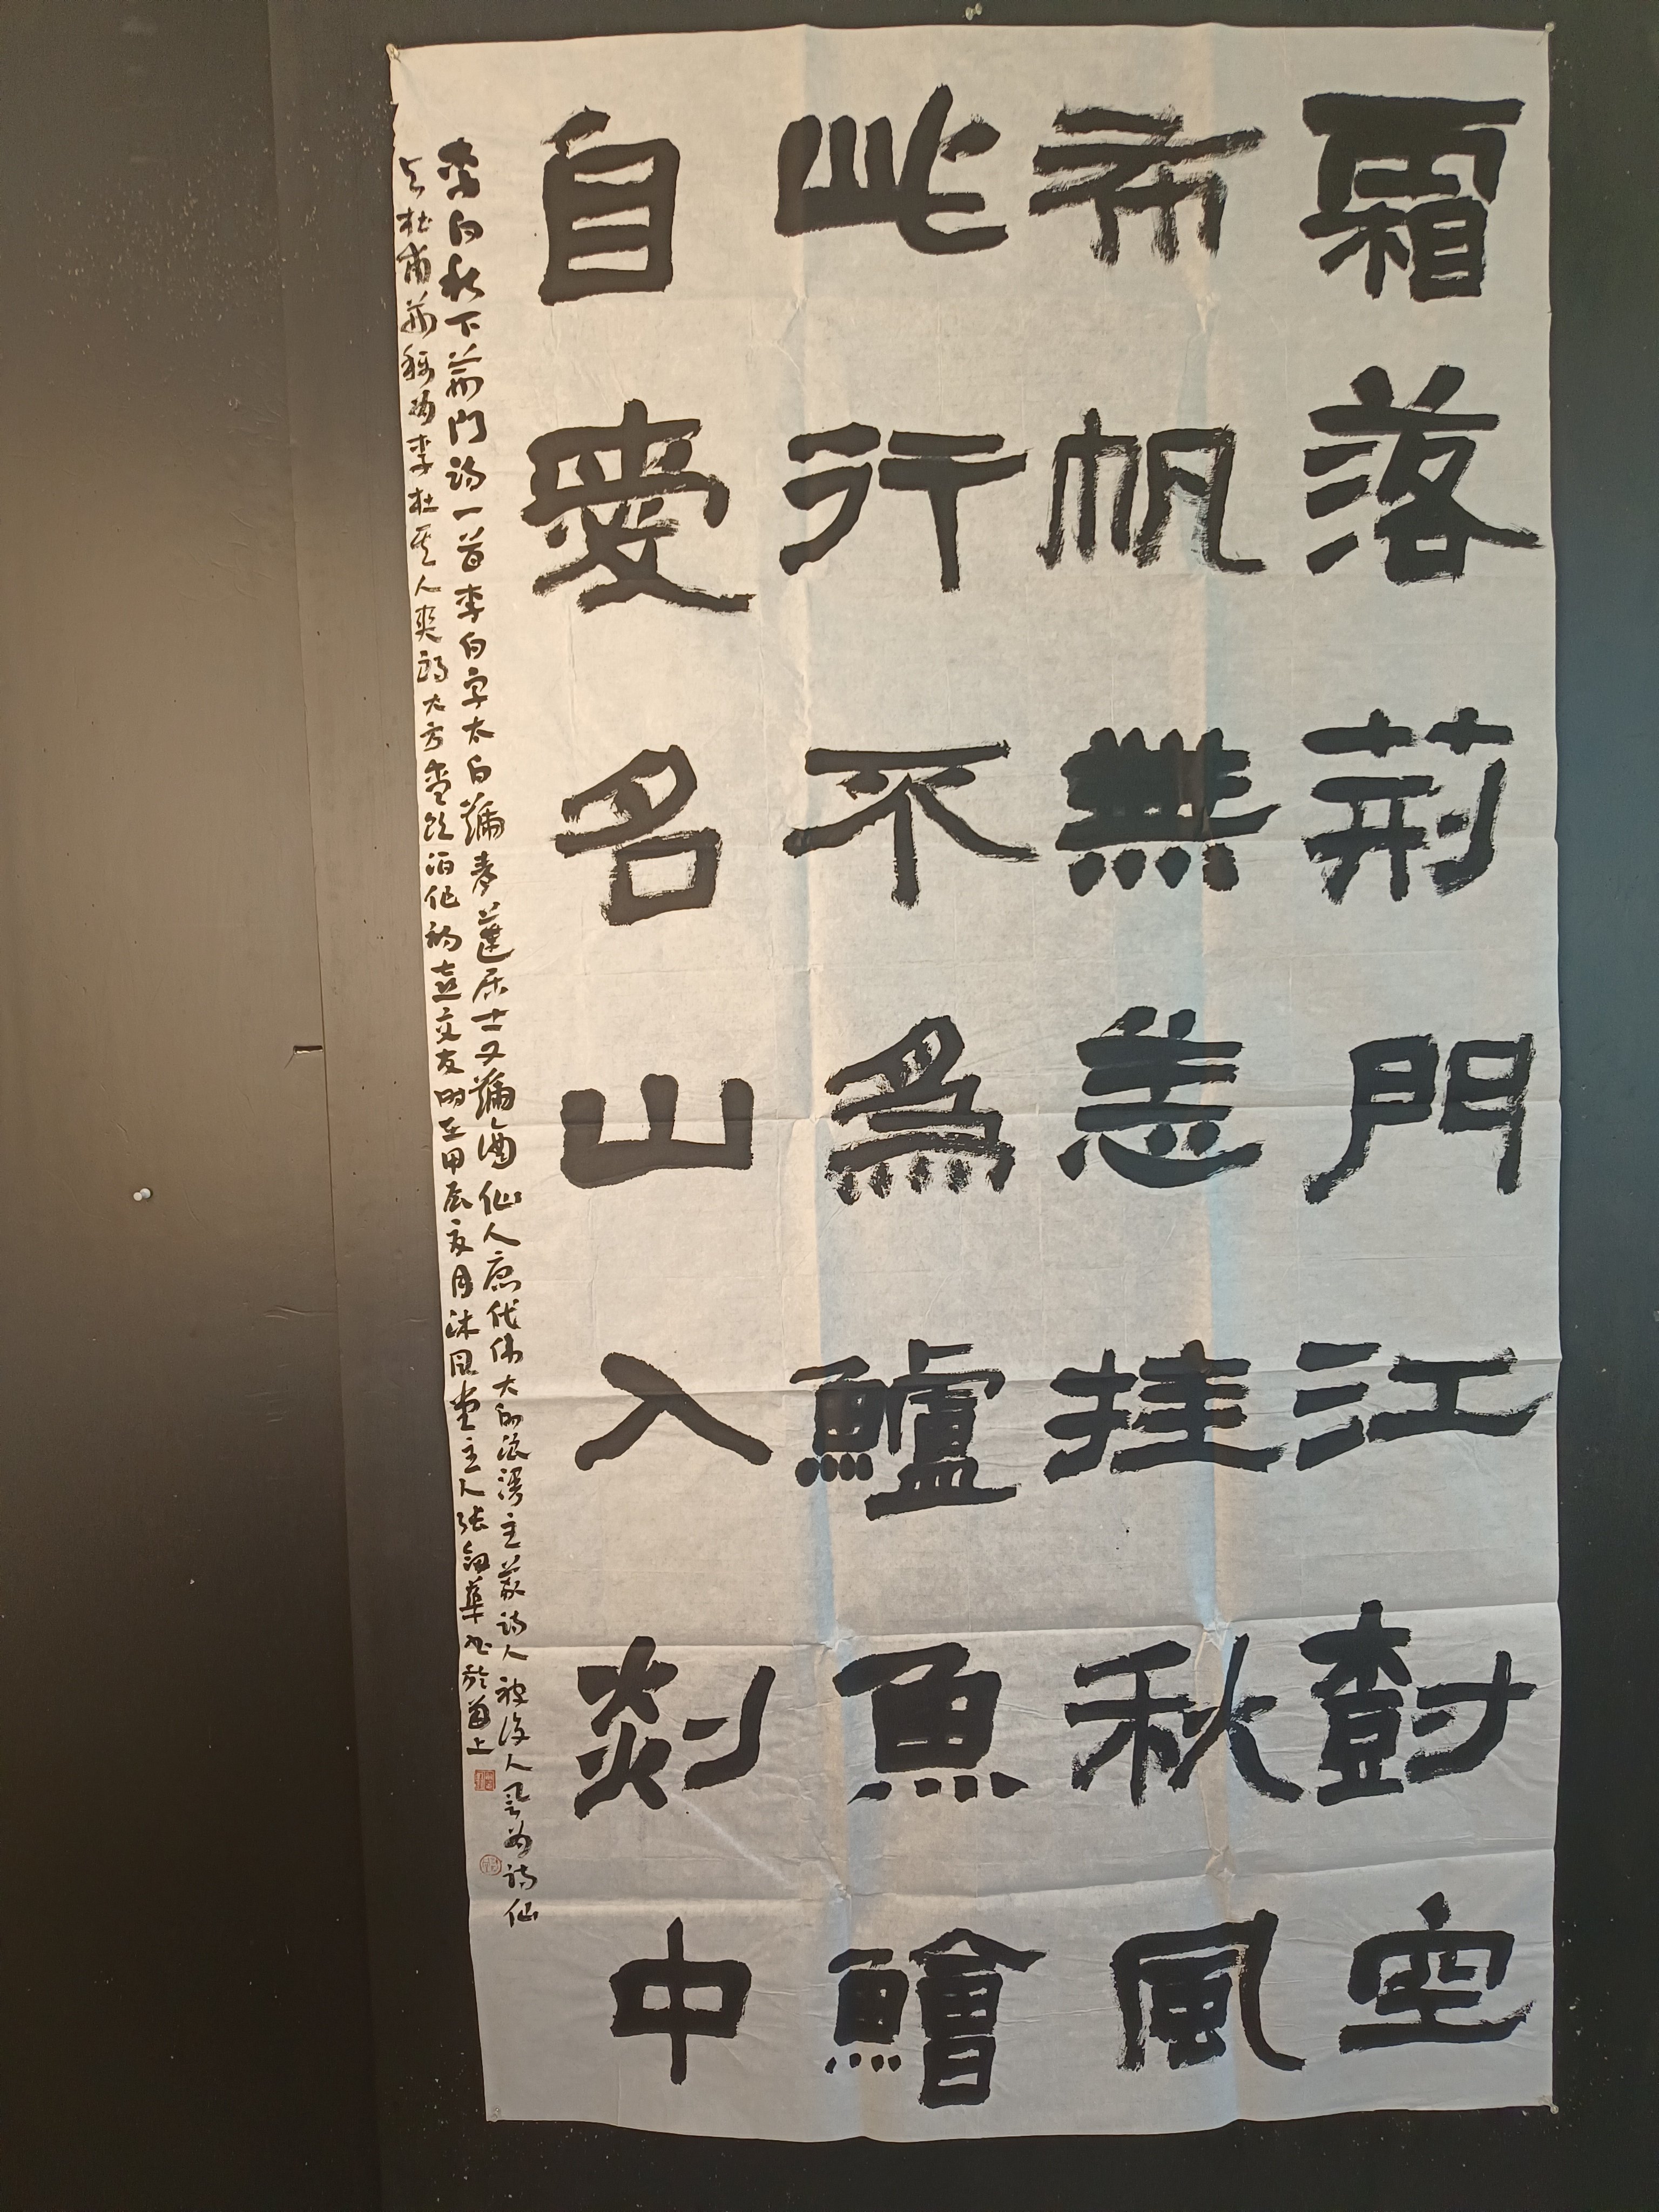 霜落荊門江樹空
布帆無恙挂秋風
此行不爲鱸魚鱠
自愛名山入剡中
李白秋下荊門詩一首李白字太白號青蓮居士又號謫仙人唐代偉大的浪漫主義詩人被後人譽為詩仙
與杜甫並稱為李杜其人爽朗大方愛飲酒作詩喜交友時在甲辰夏月沐風堂主人張劍華書於上